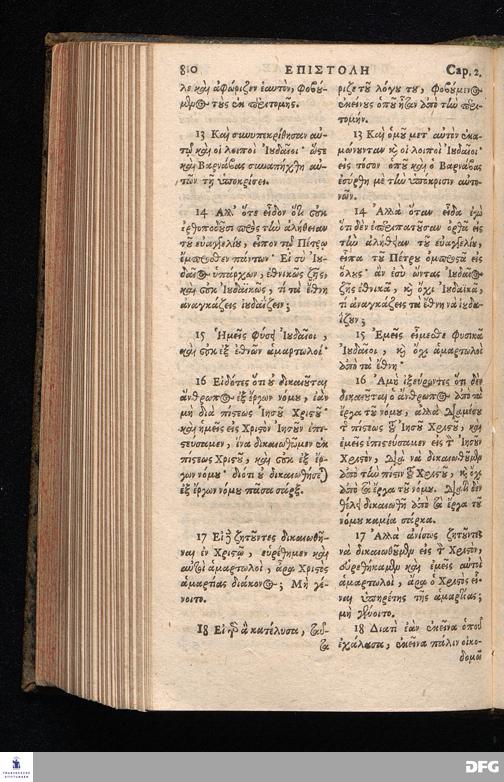 810 ΕΠΙΣΤΟΛΗ Cap. 2.
λε καὶ ἀφώριζεν ἑαυτὸν, φοβού-
μενος τοὺς ἐκ περιτομῆς.
13 Καὶ συνυπεκρίθησαν αὐ-
τῷ καὶ οἱ λοιποὶ Ἰουδαῖοι· ὥστε
καὶ Βαρνάβας συναπήχθη αὐ-
τῶν τῇ ὑποκρίσει.
14 Ἀλλ' ὅτε εἶδον ὅτι οὐκ
ὀρθοποδοῦσι πρὸς τὴν ἀλήθειαν
τοῦ εὐαγγελίου, εἶπον τῷ Πέτρῳ
ἔμπροσθεν πάντων· Εἰ σὺ Ἰου-
δαῖος ὑπάρχων, ἐθνικῶς ζῇς,
καὶ οὐκ Ἰουδαϊκῶς, τί τὰ ἔθνη
ἀναγκάζεις ἰουδαΐζειν;
15 Ἡμεῖς φύσει Ἰουδαῖοι,
καὶ οὐκ ἐξ ἐθνῶν ἁμαρτωλοί·
16 Εἰδότες ὅτι οὐ δικαιοῦται
ἄνθρωπος ἐξ ἔργων νόμου, ἐὰν
μὴ διὰ πίστεως Ἰησοῦ Χριστοῦ·
καὶ ἡμεῖς εἰς Χριστὸν Ἰησοῦν ἐπι-
στεύσαμεν, ἵνα δικαιωθῶμεν ἐκ
πίστεως Χριστοῦ, καὶ οὐκ ἐξ ἔρ-
γων νόμου· διότι οὐ δικαιωθήσεται
ἐξ ἔργων νόμου πᾶσα σάρξ.
17 Εἰ δὲ ζητοῦντες δικαιωθῆ-
ναι ἐν Χριστῷ, εὑρέθημεν καὶ
αὐτοὶ ἁμαρτωλοὶ, ἆρα Χριστὸς
ἁμαρτίας διάκονος; Μὴ γέ-
νοιτο.
18 Εἰ γὰρ ἃ κατέλυσα, ταῦ-
τα
ριζε τοῦ λόγου του, φοβούμενος
ἐκείνους ὁποῦ ἦταν ἀπὸ τὴν περι-
τομήν.
13 Καὶ ὁμοῦ μετ' αὐτὸν ἐκα-
μώνουνταν καὶ οἱ λοιποὶ Ἰουδαῖοι·
εἰς τόσον ὁποῦ καὶ ὁ Βαρνάβας
ἐσύρθη μὲ τὴν ὑπόκρισιν αὐτο-
νῶν.
14 Ἀλλὰ ὅταν εἶδα ἐγὼ
ὅτι δὲν ἐπεριπατοῦσαν ὀρθὰ εἰς
τὴν ἀλήθειαν τοῦ εὐαγγελίου,
εἶπα τοῦ Πέτρου ὀμπρὸς εἰς
ὅλους· ἂν ἐσὺ ὄντας Ἰουδαῖος
ζῇς ἐθνικὰ, καὶ ὄχι Ἰουδαϊκὰ,
τί ἀναγκάζεις τὰ ἔθνη νὰ ἰουδα-
ΐζουν;
15 Ἐμεῖς εἴμεσθε φυσικὰ
Ἰουδαῖοι, καὶ ὄχι ἁμαρτωλοὶ
ἀπὸ τὰ ἔθνη·
16 Ἀμὴ ἐξεύροντες ὅτι δὲν
δικαιοῦται ὁ ἄνθρωπος ἀπὸ τὰ
ἔργα τοῦ νόμου, ἀλλὰ διαμέσου
τῆς πίστεως τοῦ Ἰησοῦ Χριστοῦ, καὶ
ἐμεῖς ἐπιστεύσαμεν εἰς τὸν Ἰησοῦν
Χριστὸν, διὰ νὰ δικαιωθοῦμεν
ἀπὸ τὴν πίστιν τοῦ Χριστοῦ, καὶ ὄχι
ἀπὸ τὰ ἔργα τοῦ νόμου. Διατὶ δὲν
θέλει δικαιωθῆ ἀπὸ τὰ ἔργα τοῦ
νόμου καμία σάρκα.
17 Ἀλλὰ ἀνίσως ζητῶντες
νὰ δικαιωθοῦμεν εἰς τὸν Χριστὸν,
εὑρεθήκαμεν καὶ ἐμεῖς αὐτοὶ
ἁμαρτωλοὶ, ἆρα ὁ Χριστὸς εἶ-
ναι ὑπηρέτης τῆς ἁμαρτίας;
μὴ γένοιτο.
18 Διατὶ ἐὰν ἐκεῖνα ὁποῦ
ἐχάλασα, ἐκεῖνα πάλιν οἰκο-
δομῶ
FRANCKESCHE STIFTUNGEN
DFG